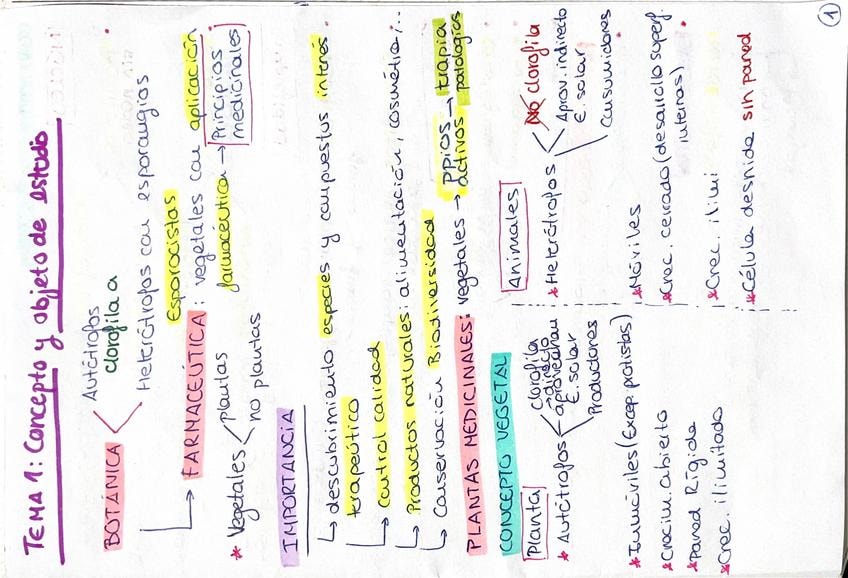 1
TEMA 1: Concepto y objeto de estudio
BOTÁNICA
Autótrofos
clorofila a
Heterótrofos con esporangios
Esporocistas
→ FARMACEÚTICA: vegetales con aplicación
farmacéutica → Principios
medicinales
* Vegetales
Plantas
no plantas
IMPORTANCIA
↳ descubrimiento especies y compuestos interés
terapéutico
↳ Control calidad
↳ Productos naturales: alimentación, cosmética,...
↳ Conservación Biodiversidad
PLANTAS MEDICINALES: vegetales → ppios → terapia
activos patologías
CONCEPTO VEGETAL
Planta
* Autótrofos
clorofila
→ directo
aprovechan
E. solar
Productores
* Inmóviles (Excep protistas)
* Crecim. abierto
* Pared Rígida
* Crec. ilimitado
Animales
* Heterótrofos
No clorofila
Aprov. indirecto
E. solar
Consumidores
* Móviles
* Crec. cerrado (desarrollo superf.
internas)
* Crec. ilimi
* Célula desnuda sin pared